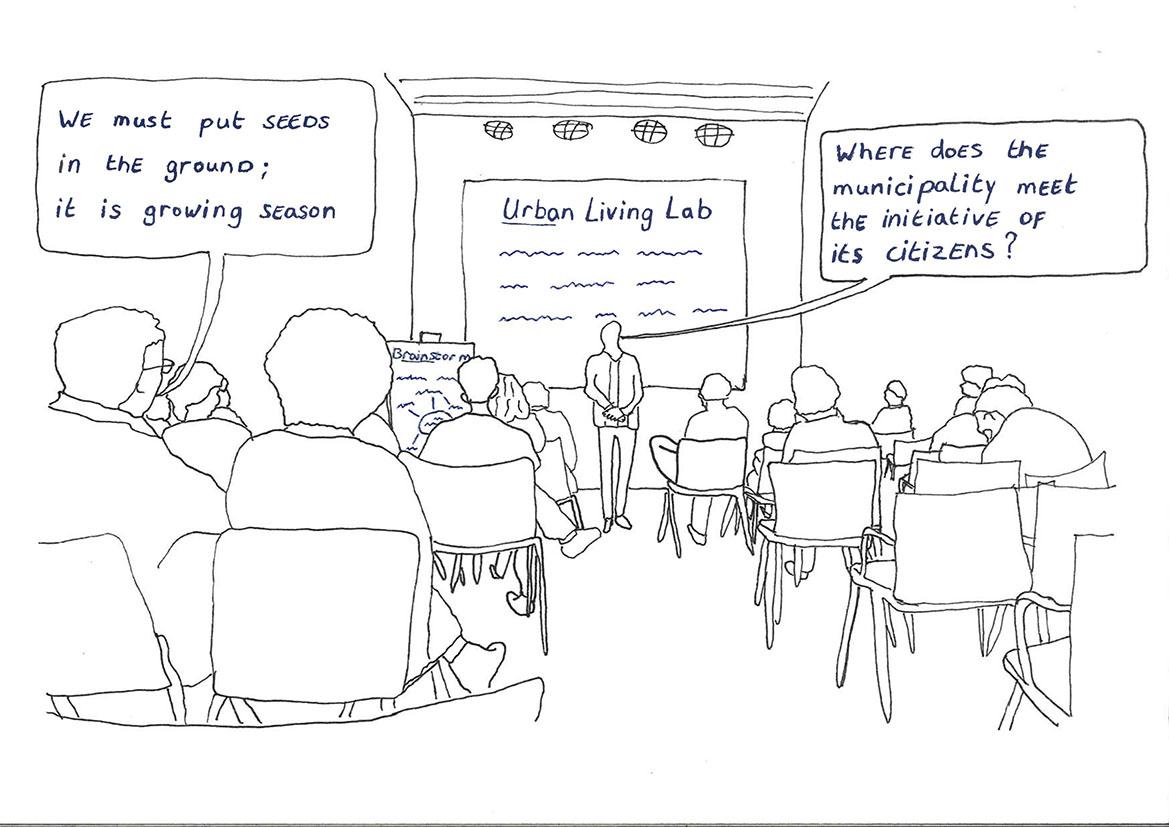 WE must put SEEDS
in the ground;
it is growing season
Urban Living Lab
Where does the
municipality meet
the initiative of
its citizens?
Brainstorm